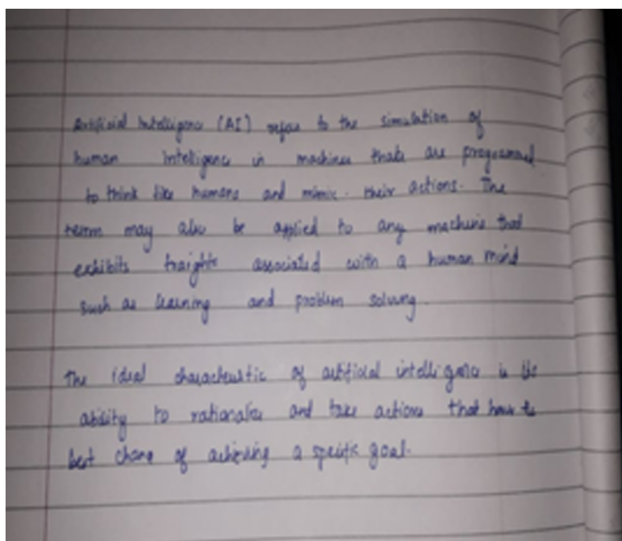 Artificial Intelligence (AI) refers to the simulation of
human Intelligence in machines thats are programed
to think like humans and mimic their actions. The
term may also be applied to any machine that
exhibits traights associated with a human mind
such as learning and problem solving.
The ideal characteristic of artificial intelligence is its
ability to rationalize and take actions that have the
best chance of achieving a specific goal.